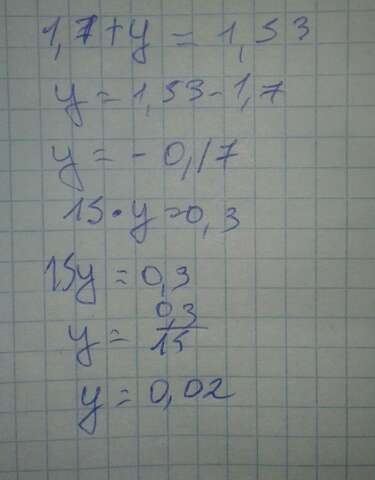 1,7+y=1,53
y=1,53-1,7
y=-0,17
15·y=0,3
15y=0,3
y=0,3/15
y=0,02